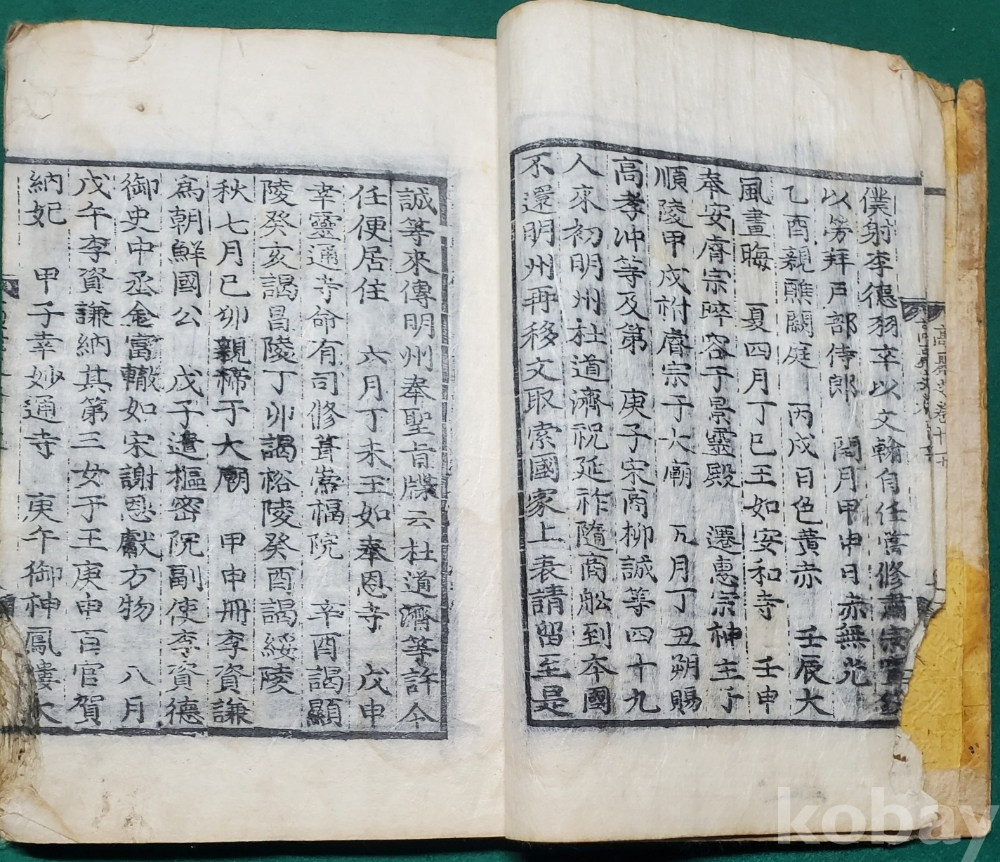 高麗史卷十五
僕射李德羽卒以文翰自任嘗修肅宗實錄
以拜戶部侍郎 閏月甲申日赤無光
乙酉親醮闕庭 丙戌日色黃赤 壬辰大
風晝晦 夏四月丁巳王如安和寺 壬申
奉安睿宗睟容于景靈殿 遷惠宗神主于
順陵甲戌祔睿宗于大廟 五月丁丑朔賜
高孝冲等及第 庚子宋商柳誠等四十九
人來初明州杜道濟祝延祚隨商舶到本國
不還明州再移文取索國家上表請留至是
誠等來傳明州奉聖旨牒云杜道濟等許令
任便居住 六月丁未王如奉恩寺 戊申
幸靈通寺命有司修葺崇福院 辛酉謁顯
陵癸亥謁昌陵丁卯謁裕陵癸酉謁綏陵
秋七月己卯親禘于大廟 甲申冊李資謙
爲朝鮮國公 戊子遣樞密院副使李資德
御史中丞金富轍如宋謝恩獻方物 八月
戊午李資謙納其第三女于王庚申百官賀
納妃 甲子幸妙通寺 庚午御神鳳樓大
kobay